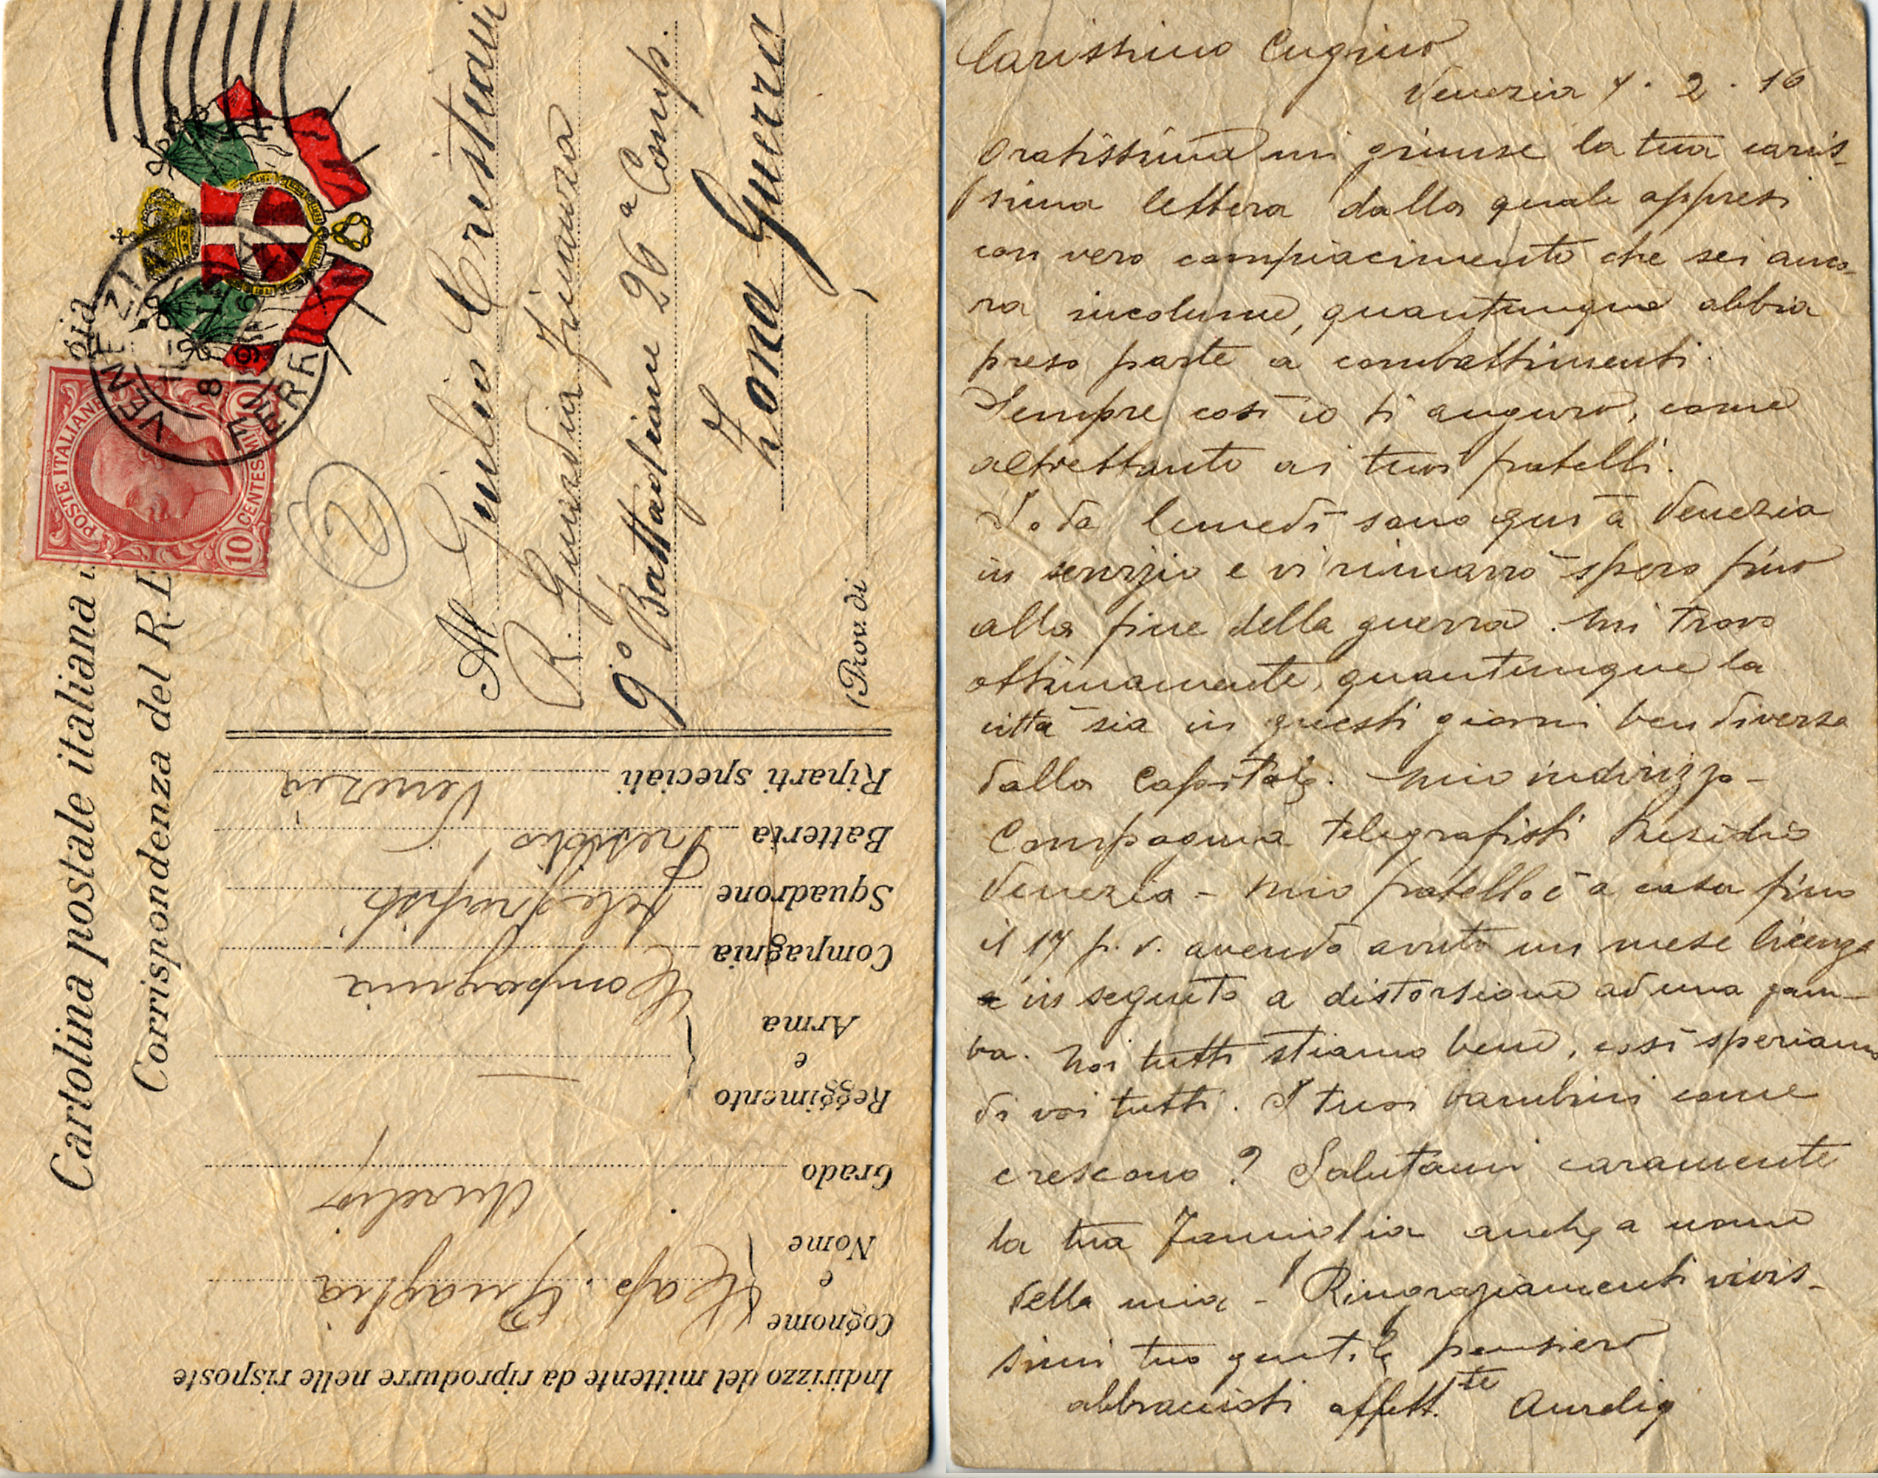 Cartolina postale italiana
Corrispondenza del R.E
POSTE ITALIANE
10 CENTESIMI 10
VENEZIA
FERROVIA
Al Giulio Cristiani
R. Guardia Finanza
9° Battaglione 26a Comp.
Zona Guerra
(Prov. di )
Indirizzo del mittente da riprodurre nelle risposte
Cognome e Nome Cap. Quaglia Aurelio
Grado
Reggimento e Arma
Compagnia Compagnia
Squadrone Telegrafisti
Batteria Presidio
Riparti speciali Venezia
Carissimo Cugino
Venezia 7. 2. 16
Gratissima mi giunse la tua caris-
sima lettera dalla quale appresi
con vero compiacimento che sei anco-
ra incolume, quantunque abbia
preso parte a combattimenti.
Sempre così io ti auguro, come
altrettanto ai tuoi fratelli.
Io da lunedì sono qui a Venezia
in servizio e vi rimarrò spero fino
alla fine della guerra. Mi trovo
ottimamente, quantunque la
città sia in questi giorni ben diversa
dalla Capitale. Mio indirizzo -
Compagnia Telegrafisti Presidio
Venezia - Mio fratello è a casa fino
il 17 p. v. avendo avuto un mese licenza
in seguito a distorsione ad una gam-
ba. Noi tutti stiamo bene, così speriamo
di voi tutti. I tuoi bambini come
crescono? Salutami caramente
la tua Famiglia anche a nome
della mia - Ringraziamenti vivis-
simi tuo gentile pensiero
abbraccioti affett.te Aurelio